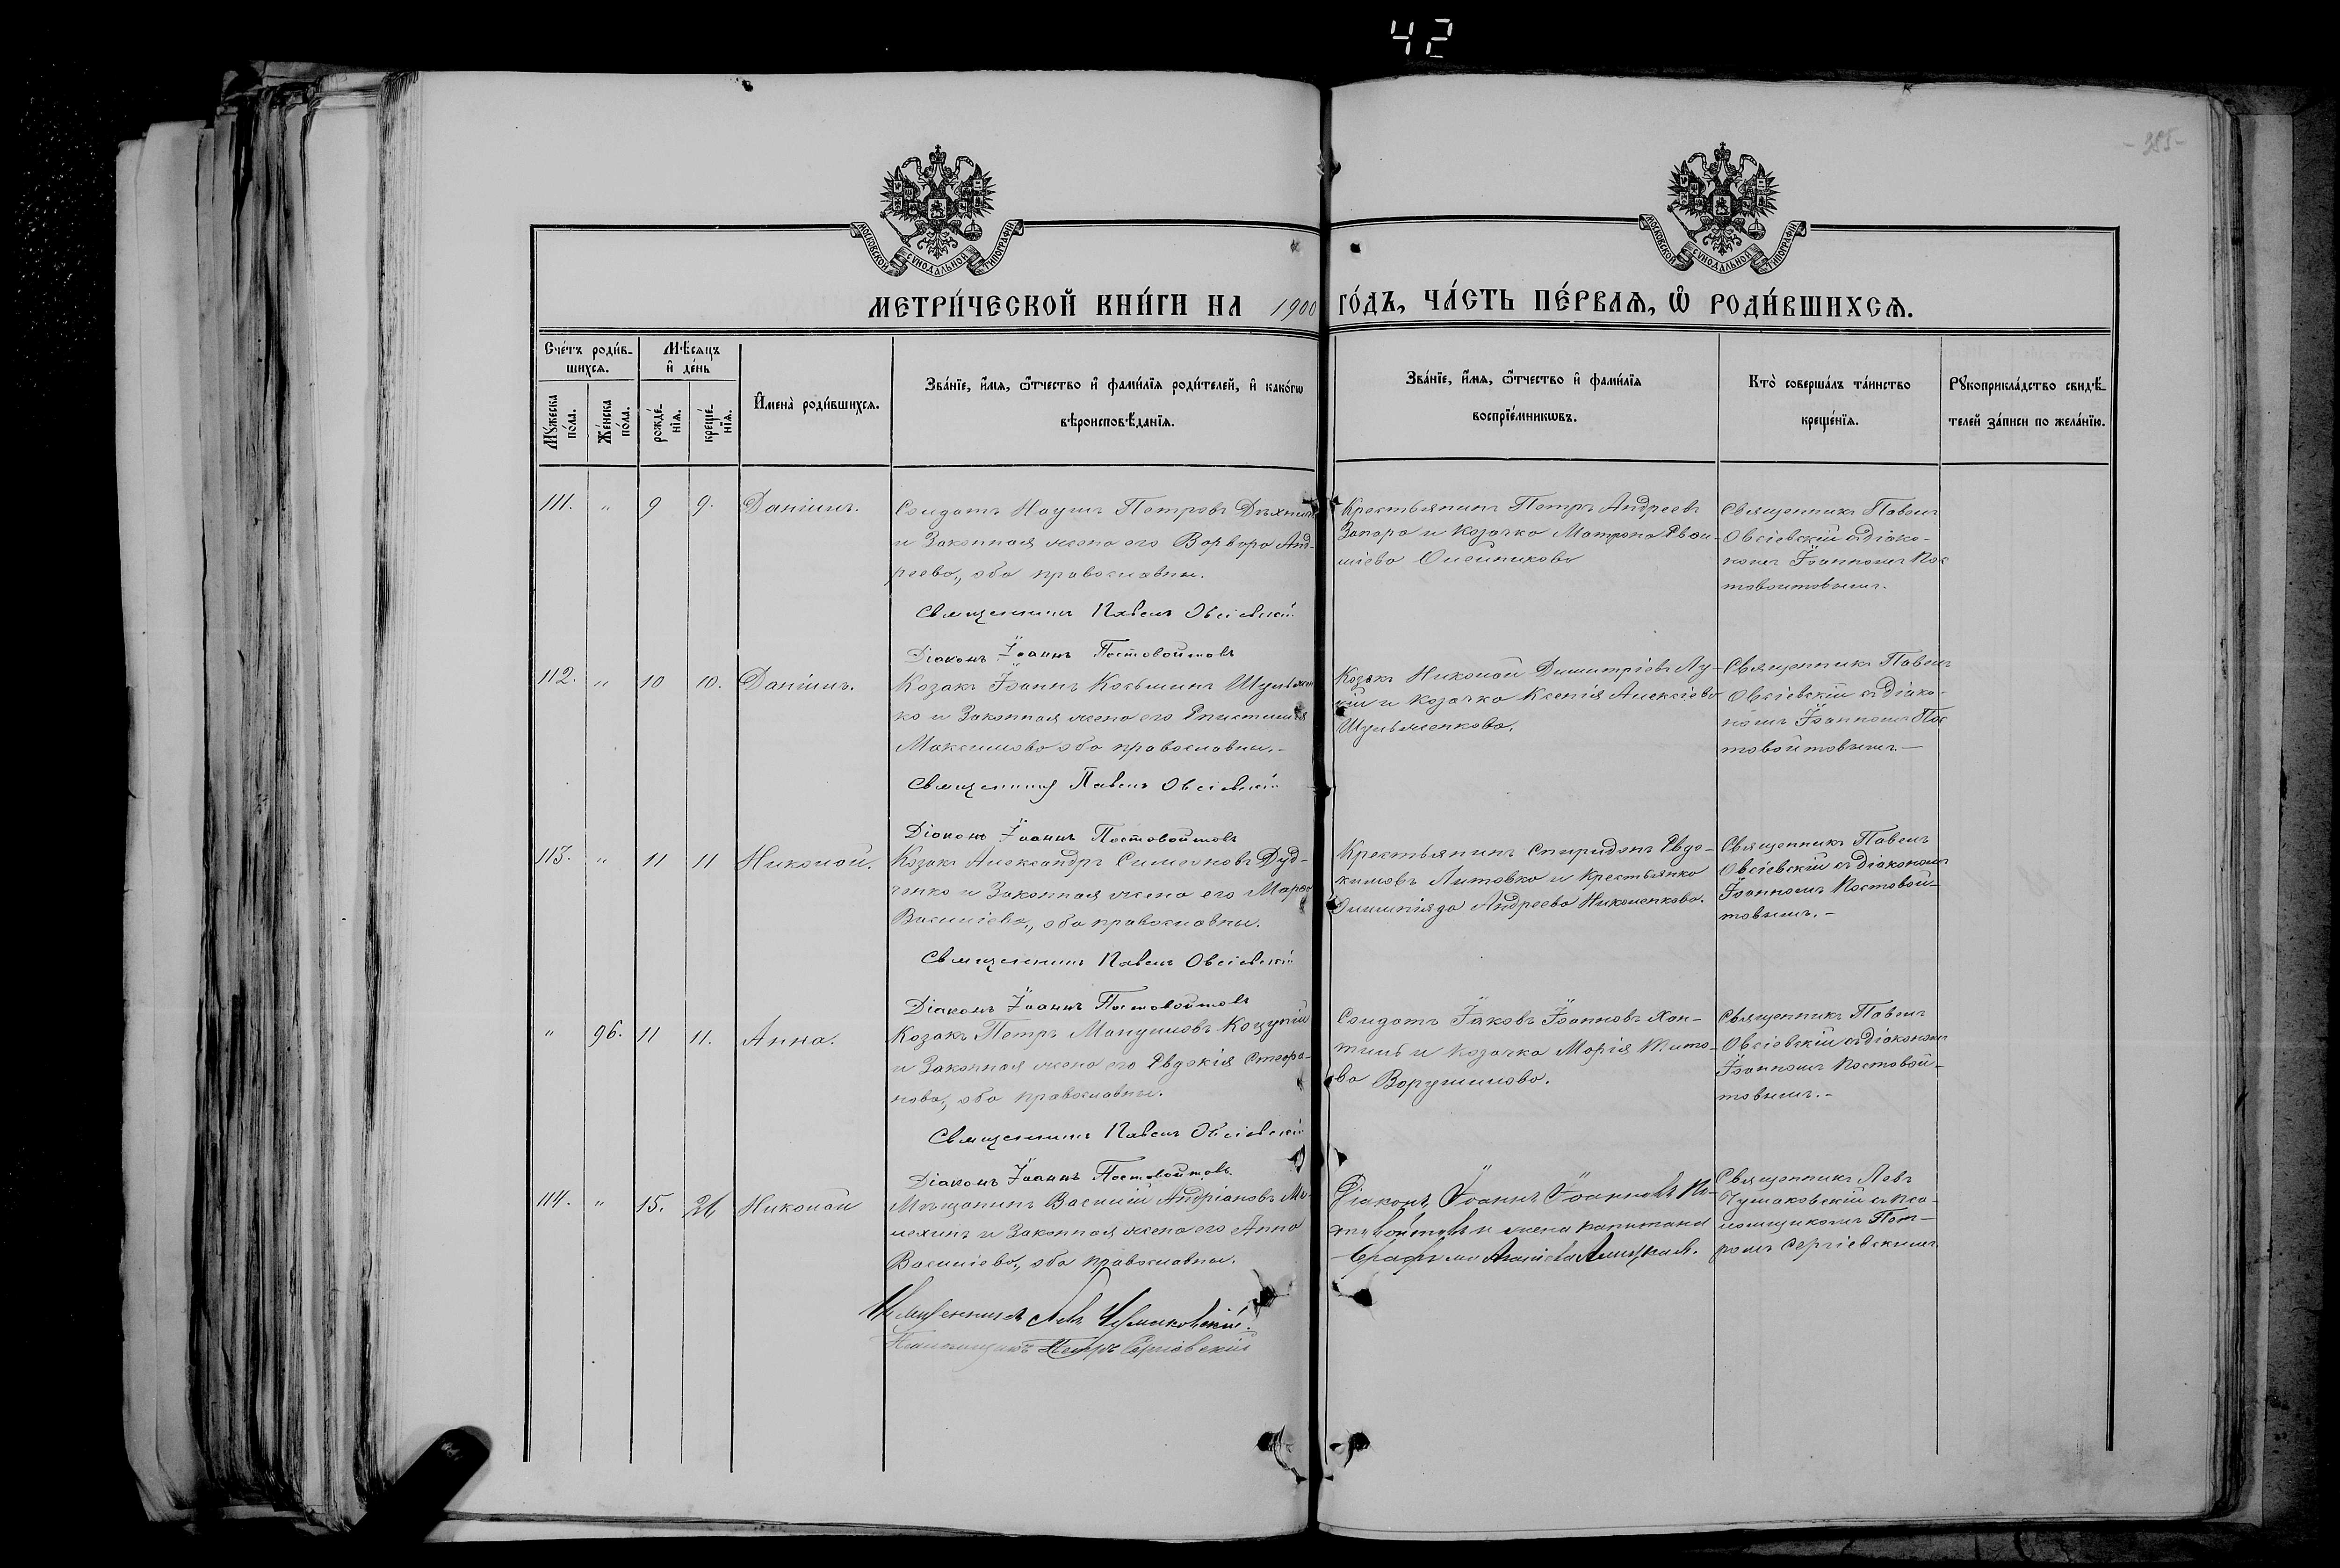 42
- 385 -
МОСКОВСКОЙ СѴНОДАЛЬНОЙ ТИПОГРАФІИ
МОСКОВСКОЙ СѴНОДАЛЬНОЙ ТИПОГРАФІИ
МЕТРИ́ЧЕСКОЙ КНИ́ГИ НА 1900 ГО́ДЪ, ЧА́СТЬ ПЕ́РВАѦ, Ѽ РОДИ́ВШИХСѦ.
Сче́тъ роди́в-
шихсѧ.
Мѣ́сяцъ
и҆ де́нь
Му́жеска по́ла.
Же́нска по́ла.
рожде́-нїѧ.
креще́-нїѧ.
И҆мена̀ роди́вшихсѧ.
Зва́нїе, и҆́мѧ, ѻ҆́тчество и҆ фами́лїѧ роди́телей, и҆ како́гѡ
вѣроисповѣ́данїѧ.
Зва́нїе, и҆́мѧ, ѻ҆́тчество и҆ фами́лїѧ
воспрїе́мникѡвъ.
Кто̀ соверша́лъ та́инство
креще́нїѧ.
Рꙋкоприкла́дство свидѣ́-
телей за́писи по жела́нїю.
111. " 9 9. Даніилъ.
Солдатъ Наумъ Петровъ
и Законная жена его Варвара Анд-
реева, оба православны.
Священникъ Павелъ Овсіевскій
Діаконъ Іоаннъ Постовойтовъ
Крестьянинъ Петръ Андреевъ
Запара и козачка Матрона Евѳи-
міева Олейникова
Священникъ Павелъ
Овсіевскій съ діако-
номъ Іоанномъ Пос
товойтовымъ.
112. " 10 10. Даніилъ.
Козакъ Іоаннъ Косьминъ Шульжен
ко и Законная жена его Епистимія
Максимова оба православны.-
Священникъ Павелъ Овсіевскій
Діаконъ Іоаннъ Постовойтовъ
Козакъ Николай Димитріевъ Лу-
кій и козачка Ксенія Алексіева
Шульженкова.
Священникъ Павелъ
Овсіевскій съ діако-
номъ Іоанномъ Пос
товойтовымъ.—
113. " 11 11 Николай.
Козакъ Александръ Симеоновъ Дуд-
ченко и Законная жена его Марѳа
Василіева, оба православны.
Священникъ Павелъ Овсіевскій
Діаконъ Іоаннъ Постовойтовъ
Крестьянинъ Спиридонъ Евдо-
кимовъ Литовка и крестьянка
Олимпіяда Андреева Николенкова.
Священникъ Павелъ
Овсіевскій съ діакономъ
Іоанномъ Постовой-
товымъ.-
" 96. 11 11. Анна.
Козакъ Петръ Мануиловъ Коцупій
и Законная жена его Евдокія Стефа-
нова, оба православны.
Священникъ Павелъ Овсіевскій
Діаконъ Іоаннъ Постовойтовъ.
Солдатъ Іаковъ Іоанновъ Хал-
тинъ и козачка Марія Тито-
ва Ворушилова.
Священникъ Павелъ
Овсіевскій съ діакономъ
Іоанномъ Постовой-
товымъ.-
114. " 15. 26 Николай
Мѣщанинъ Василій Андріановъ Ма-
лехинъ и Законная жена его Анна
Василіева, оба православны.
Священникъ Левъ Чушаковскій.
Псаломщикъ Петръ Сергіевскій
Діаконъ Іоаннъ Іоанновъ По-
стовойтовъ и жена капитана
Священникъ Левъ
Чушаковскій съ пса-
ломщикомъ Пет-
ромъ Сергіевскимъ